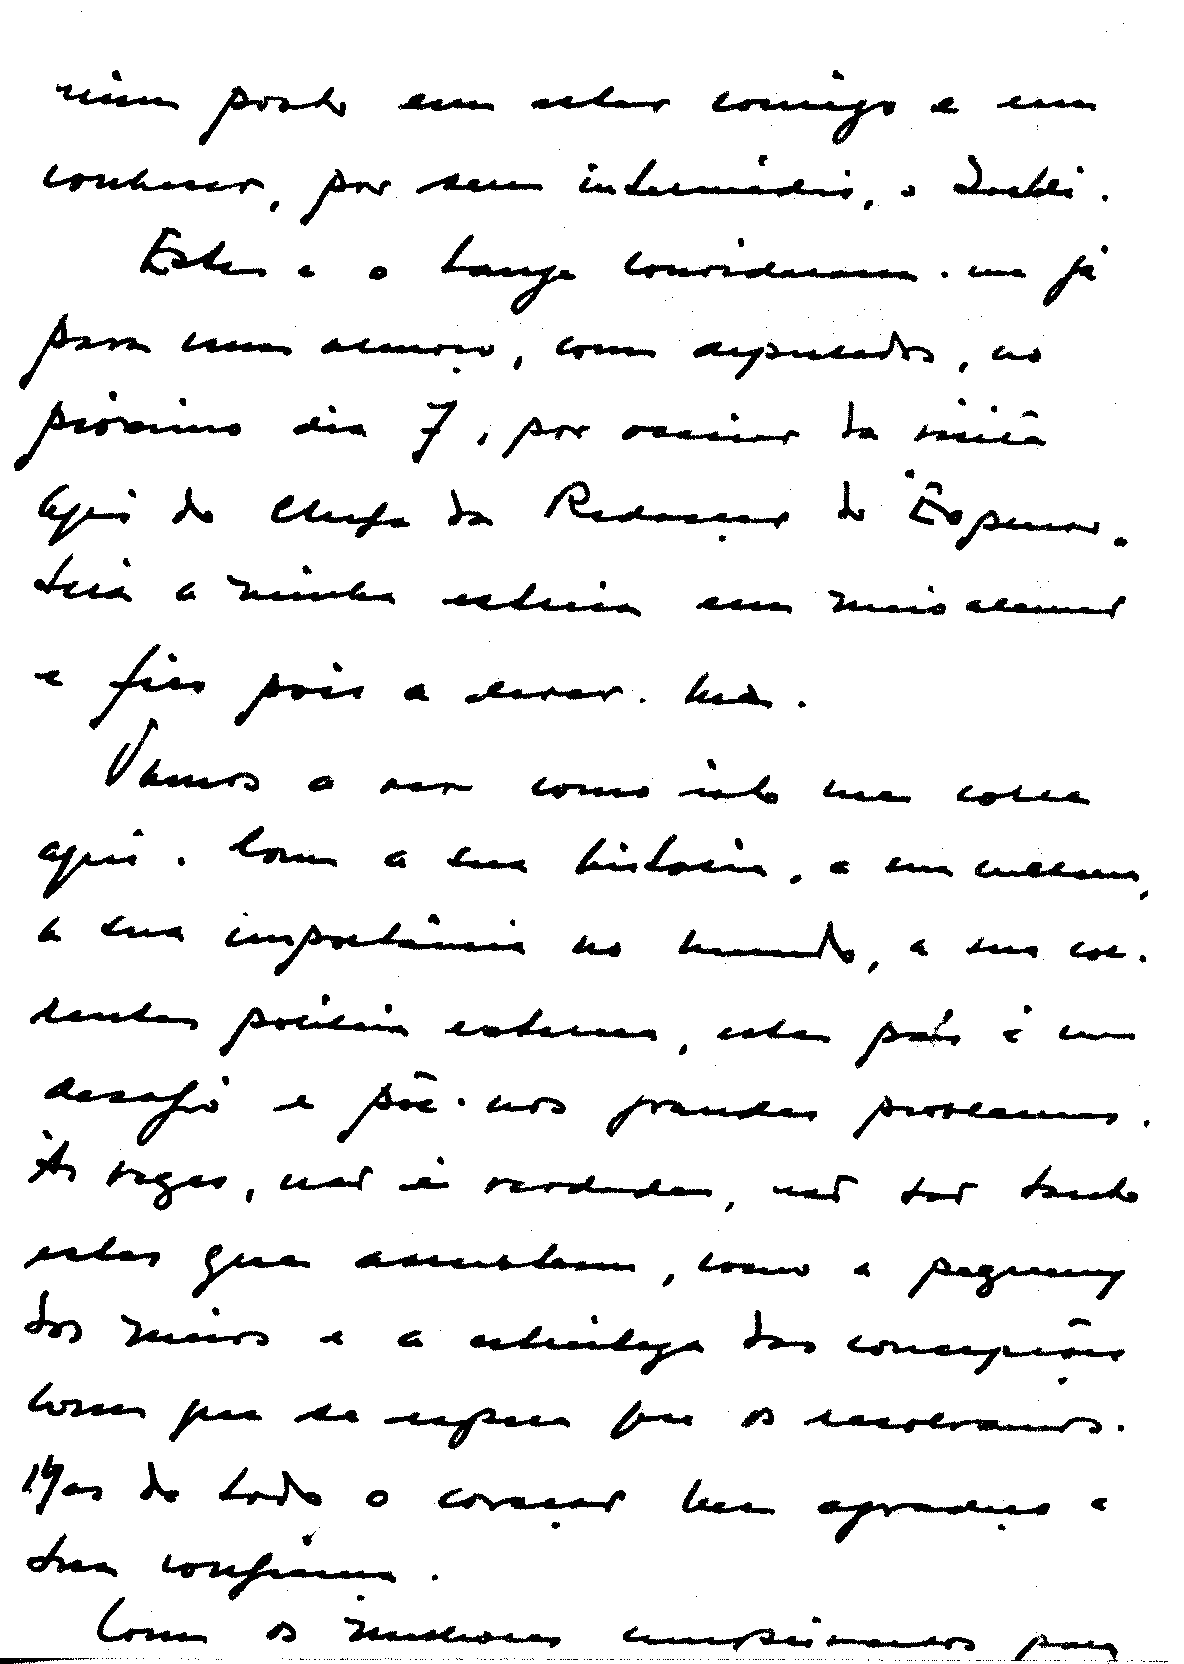 nimo posto em estar comigo e em
conhecer, por seu intermédio, o
Este e o Lange convidaram-me já
para um almoço, com deputados, no
próximo dia 7, por ocasião da visita
aqui do Chefe da Redacção do Expresso.
Será a minha estreia em meio alemão
e fico pois a dever-lha.
Vamos a ver como isto me corre
aqui. Com a sua história, a sua cultura,
a sua importância no mundo, a sua cor-
rente política externa, este país é um
desafio e põe-nos grandes problemas.
Às vezes, não é verdade, não são tanto
estes que assustam, como a pequenez
dos meios e a estreiteza das concepções
com que se espera que os resolvamos.
Mas de todo o coração lhe agradeço a
sua confiança.
Com os melhores cumprimentos para